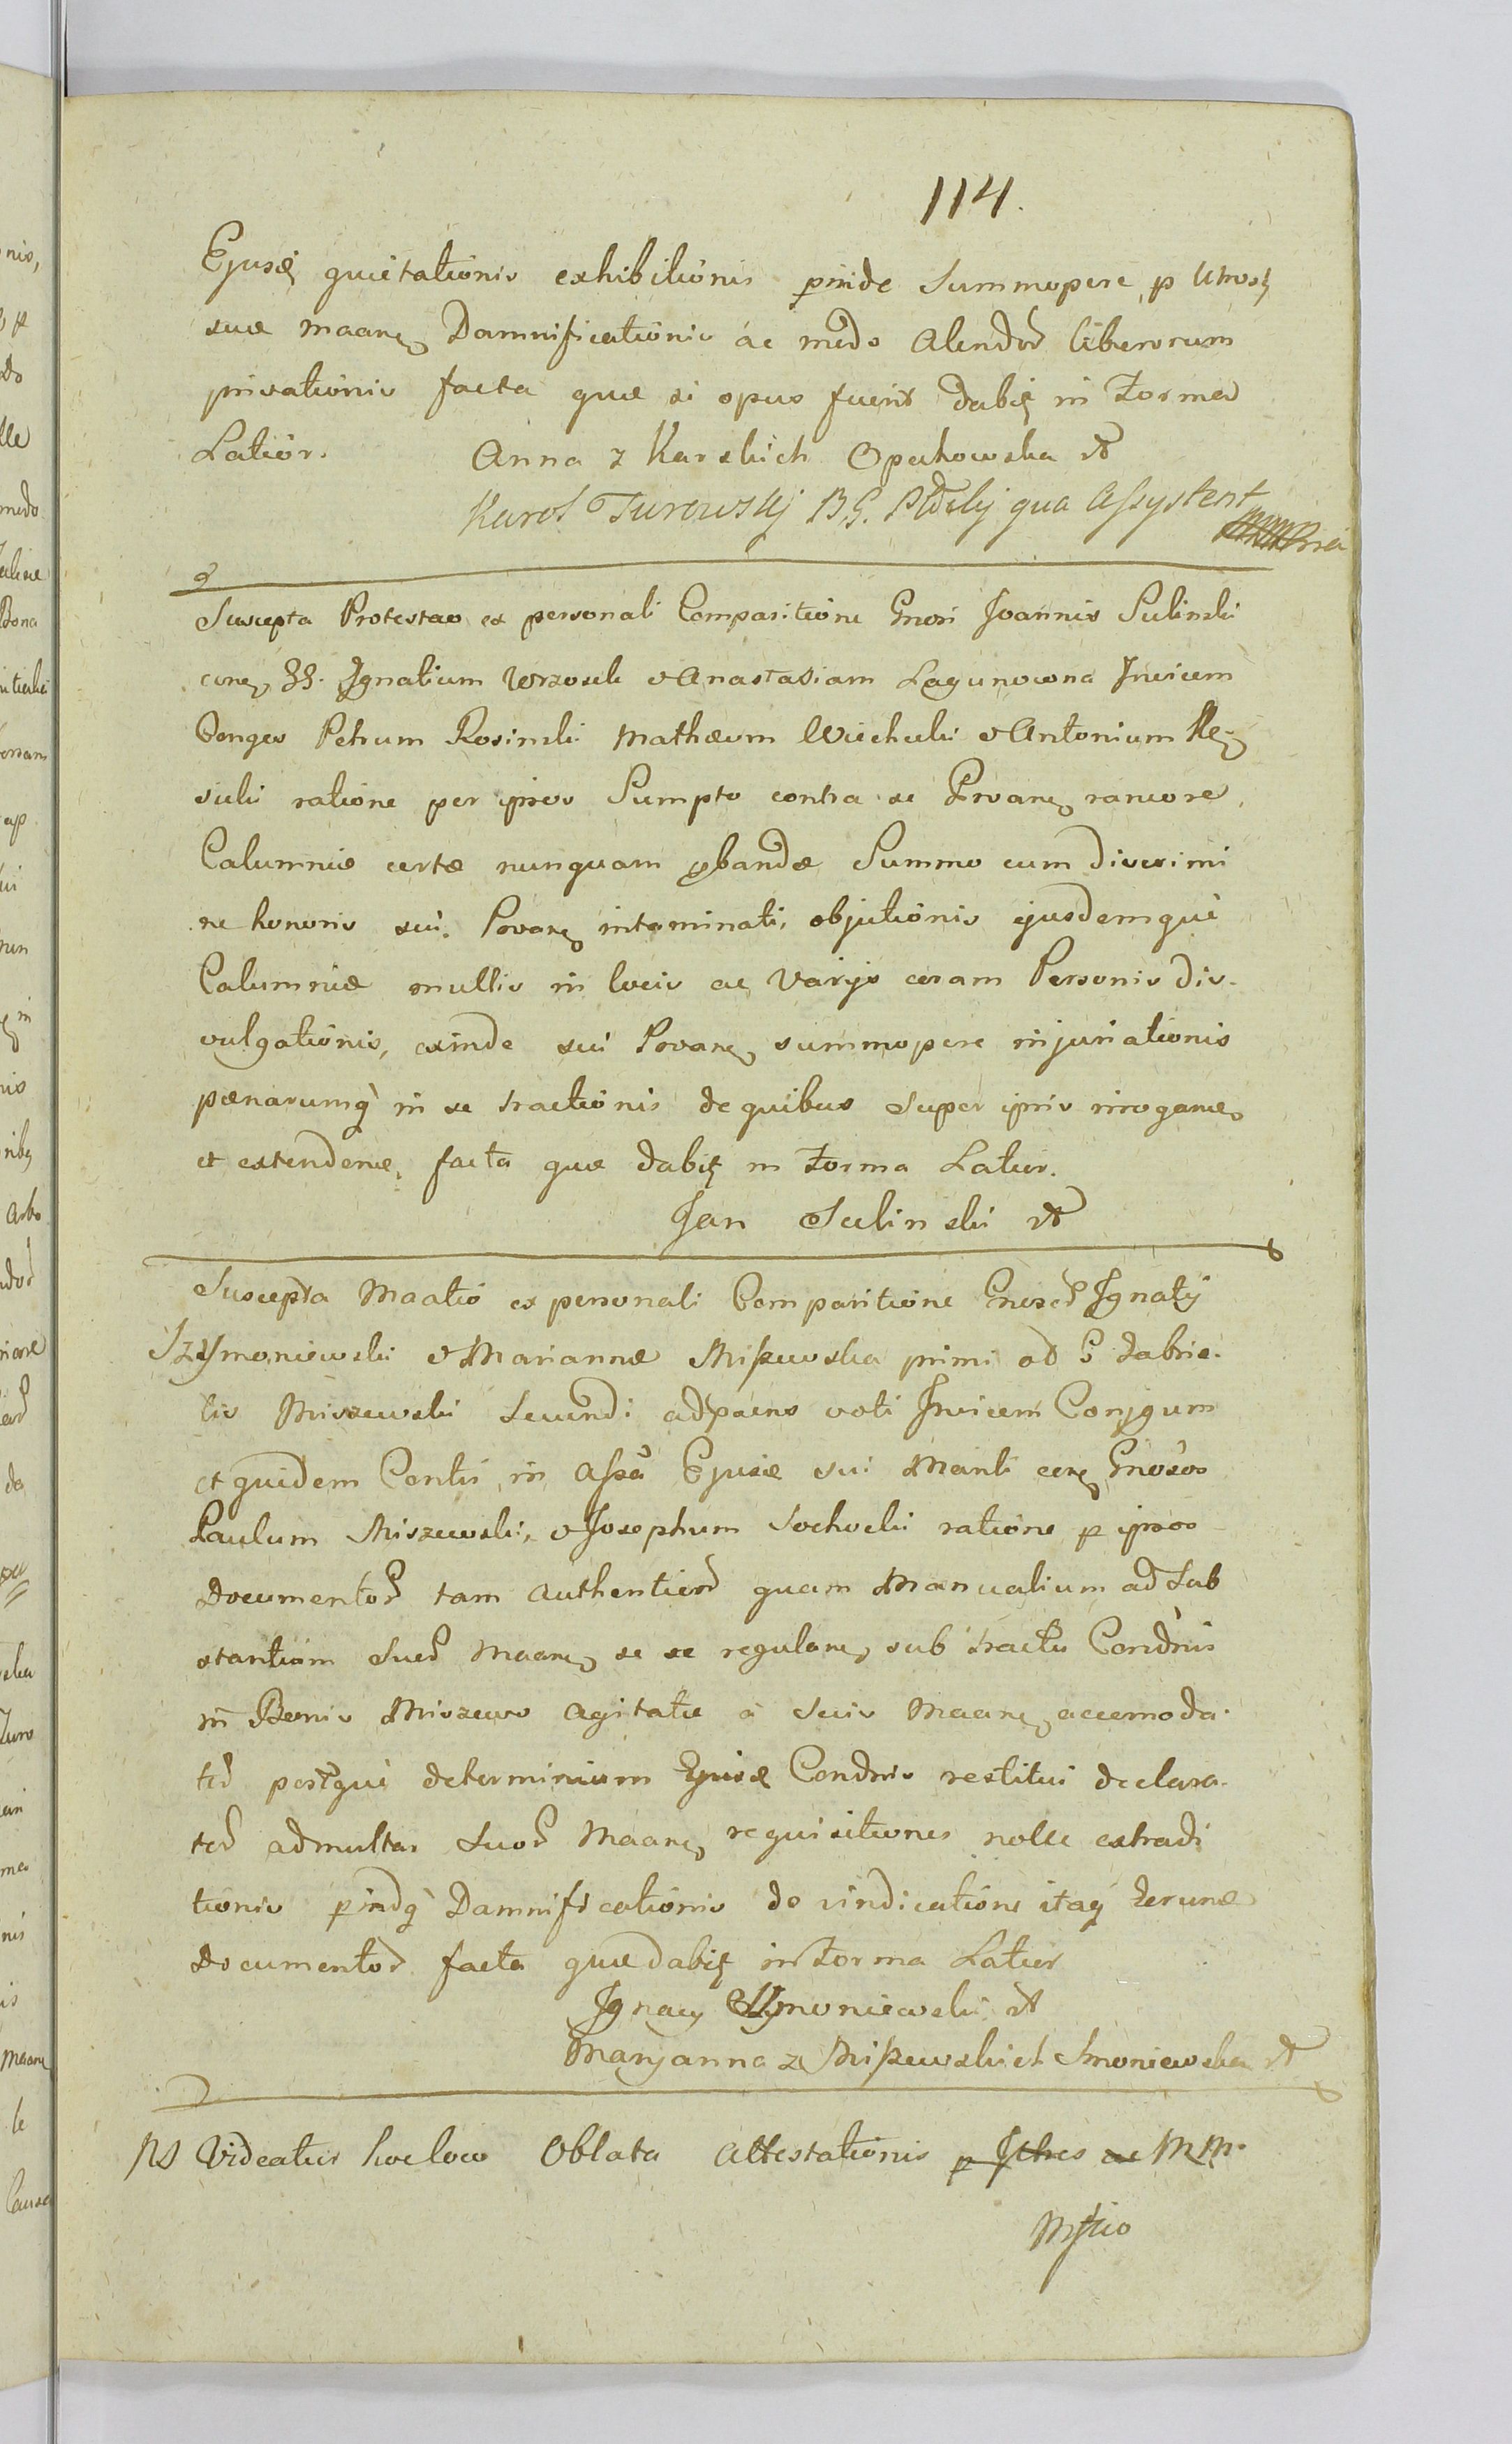 114.
Ejusd quietationis exhibitionis pinde Summopere p Utrosq
suae maane Damnificationis ac medo alendor liberorum
privationis facta quae si opus fuerit dabit in Forma
Latior. Anna z Karskich Opakowska
Karol Turowskj B. G. qua Assystent
Suscepta Protestao ex personali Comparitione Gnosi Joannis Sulinski
cone. Ignatium Wrzosek & Anastasiam Lagunowona Invicem
Conges Petrum Rosinski Mathaeum Wiechecki & Antonium
sicki ratione per ipsos Sumpto contra se Prvane rancore
Calumniae certae nunquam pbandae Summo cum discrimi
ne honoris sui Prvane intaminati, objectionis ejusdemque
Calumniae multis in locis ac varijs coram Personis div-
vulgationis, exinde sui Prvane summopere injuriationis
paenarumq in se tractionis de quibus super ipsis irrogane
et extendene facta quae dabit in Forma Latior.
Jan Sulinski
Suscepta Maatio ex personali Comparitione Gnosor Ignatij
Szymoniewski & Mariannae Miszewska primi ad G Gabrie-
lis Miszewski Secundi adpraens voti Invicem Conjgum
et quidem Contis in assa Ejusd sui Mariti cone Gnosos
Paulum Miszewski, & Josephum Sochocki ratione p ipsos
Documentor tam authenticor quam Manualium ad Sub
stantiam Suar Maane se se regulane sub tractu Condnis
in Bonis Miszewo agitatae a Suis Maane accomoda-
tor postque determinium Ejusd Condnis restitui declara-
tor ad multas Suor Maane requisitiones nolle extradi
tionis pindq Damnificationis de vindicatione itaq
Documentor facta quae dabit in Forma Latior
Ignacy Szymoniewski
Maryanna z Miszewskich Smoniewska
NS Videatur hocloco Oblata Attestationis p